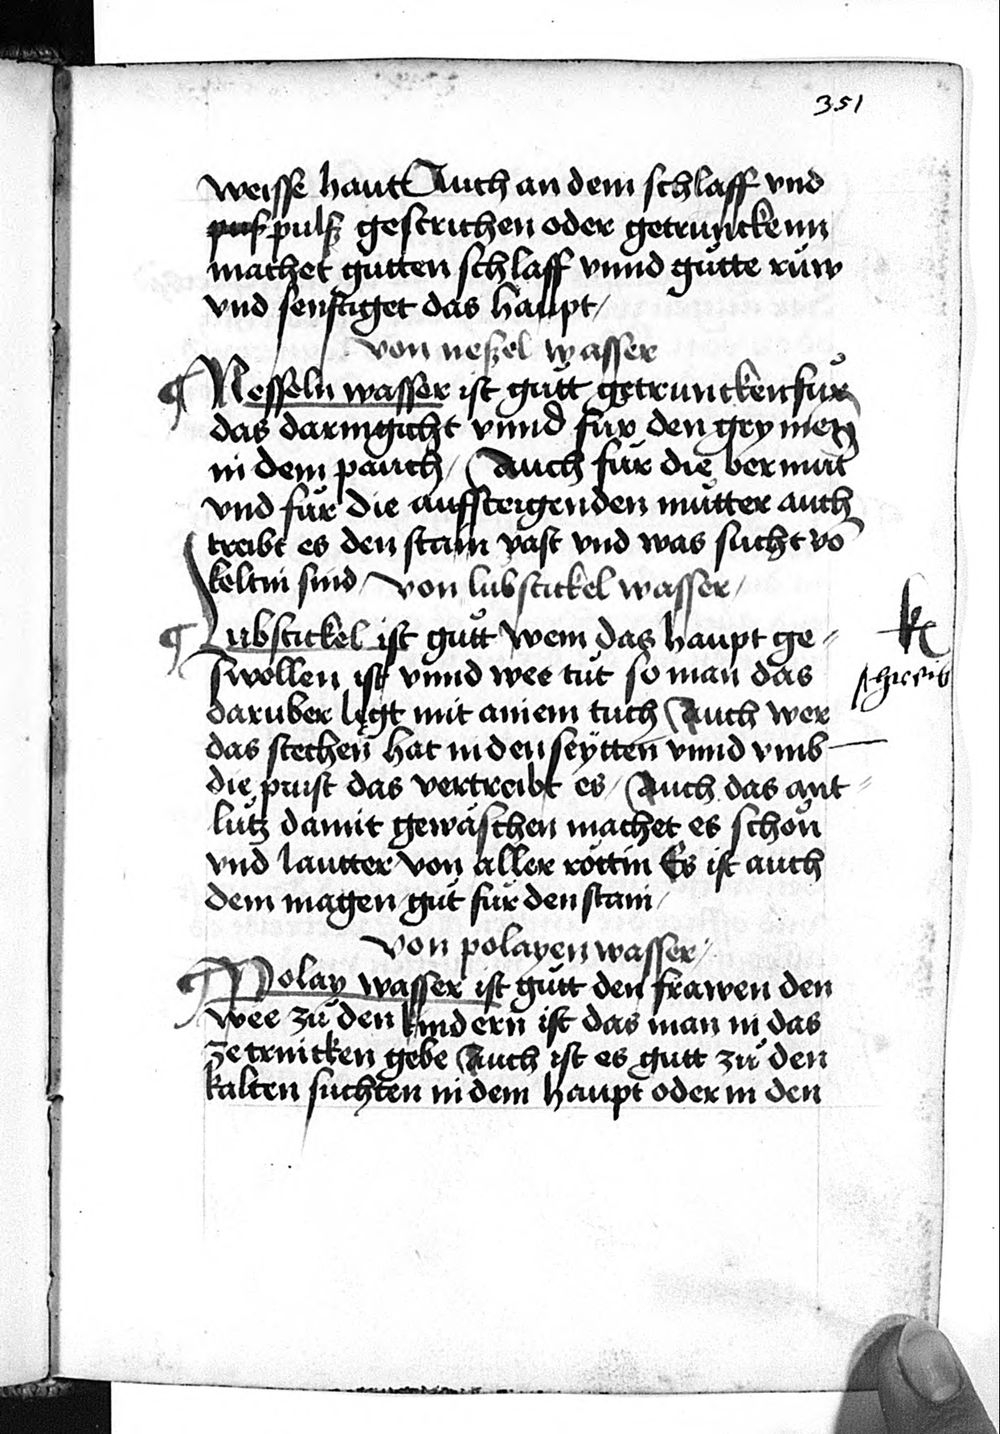 351
weisse hautt Auch an dem schlaff vnd
pulß gestrichen oder getrunckenn
machet gutten schlaff vnnd gůtte růw
vnd senftiget das haupt /
von neßel wasser
¶ Nesseln wasser ist gůtt getruncken fůr
das darmgicht vnnd für den grymen
in dem pauch / Auch für die bermůt
vnd für die auffsteigenden můtter auch
treibt es den stain vast vnd was sucht vō
keltin sind / von lubstickel wasser /
¶ Lubstickel ist gůtt wem das haupt ge=
swollen ist vnnd wee tůt so man das
daruber legt mit ainem tuch Auch wer
das stechen hat in den seÿtten vnnd vmb
die prust das vertreibt es / Auch das ant=
lütz damit gewäschen machet es schön
vnd lautter von aller röttin Es ist auch
dem magen gůt für den stain /
von polayen wasser /
¶ Polay wasser ist gůtt den frawen den
wee zů den kindern ist das man in das
ze trincken gebe Auch ist es gutt zů den
kalten suchten in dem haupt oder in den